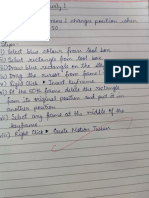 Steps:-
i) Select blue colour from tool box
ii) Select rectangle from tool box
iii) Draw blue rectangle on the stage
iv) Drag the cursor from frame 1
v) Right Click → Insert Keyframe
vi) At the 50th frame delete the rectangle
from its original position and put it on
another position
vii) Select any frame at the middle of the
keyframe
Right Click → Create Motion Tween